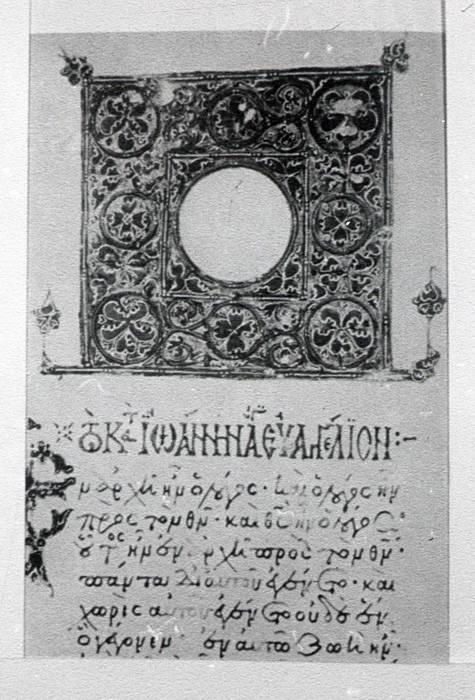 ΤΟ ΚΑΤ ἸΩΑΝΝΗΝ ΕΥΑΓΓΕΛΙΟΝ:-
Ἐν ἀρχῆ ἦν ὁ λόγος· καὶ ὁ λόγος ἦν
πρὸς τὸν θν· καὶ θς ἦν ὁ λόγος·
οὗτος ἦν ἐν ἀρχῆ πρὸς τὸν θν·
πάντα δι αὐτοῦ ἐγένετο· καὶ
χωρὶς αὐτοῦ ἐγένετο οὐδὲ ἕν
ὃ γέγονεν· ἐν αὐτῶ ζωὴ ἦν·